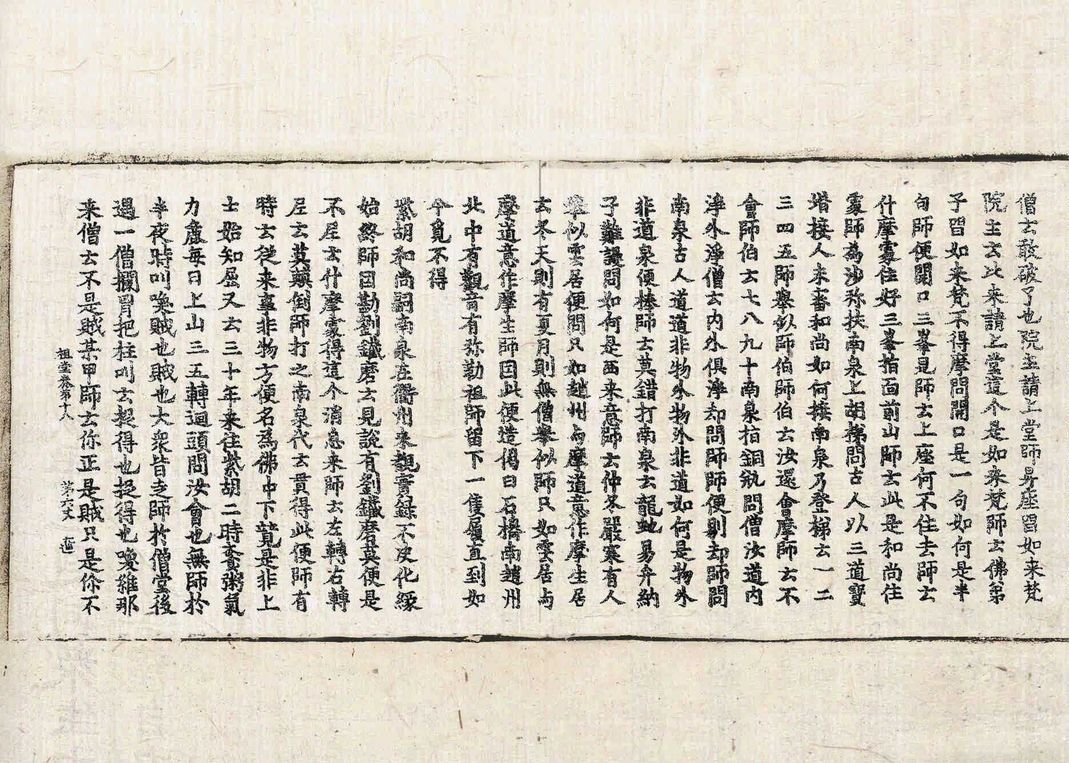 僧云敢破了也院主請上堂師昇座唱如来梵
院主云比来請上堂這个是如来梵師云佛弟
子唱如来梵不得摩問開口是一句如何是半
句師便開口三峯見師云上座何不住去師云
什摩處住好三峯指面前山師云此是和尚住
處師為沙弥扶南泉上胡梯問古人以三道寶
堦接人未審和尚如何接南泉乃登梯云一二
三四五師舉似師伯師伯云汝還會摩師云不
會師伯云七八九十南泉指銅缾問僧汝道内
淨外淨僧云内外俱淨却問師師便剔却師問
南泉古人道道非物外物外非道如何是物外
非道泉便棒師云莫錯打南泉云龍虵易弁納
子難謾問如何是西来意師云仲冬嚴寒有人
舉似雲居便問只如趙州与摩道意作摩生居
云冬天則有夏月則無僧舉似師只如雲居与
摩道意作摩生師因此便造偈曰石橋南趙州
北中有觀音有弥勒祖師留下一隻履直到如
今覓不得
紫胡和尚嗣南泉在衢州未覩實録不决化緣
始終師因勘劉鐵磨云見說有劉鐵磨莫便是
不尼云什摩處得這个消息来師云左轉右轉
尼云莫顛倒師打之南泉代云貫得此便師有
時云従来事非物方便名為佛中下競是非上
士始知屈又云三十年来住紫胡二時齋粥氣
力麁每日上山三五轉迴頭問汝會也無師於
半夜時叫喚賊也賊也大衆皆走師於僧堂後
遇一僧攔胷把柱叫云捉得也捉得也喚維那
来僧云不是賊某甲師云你正是賊只是你不
祖堂卷第十八　第六丈